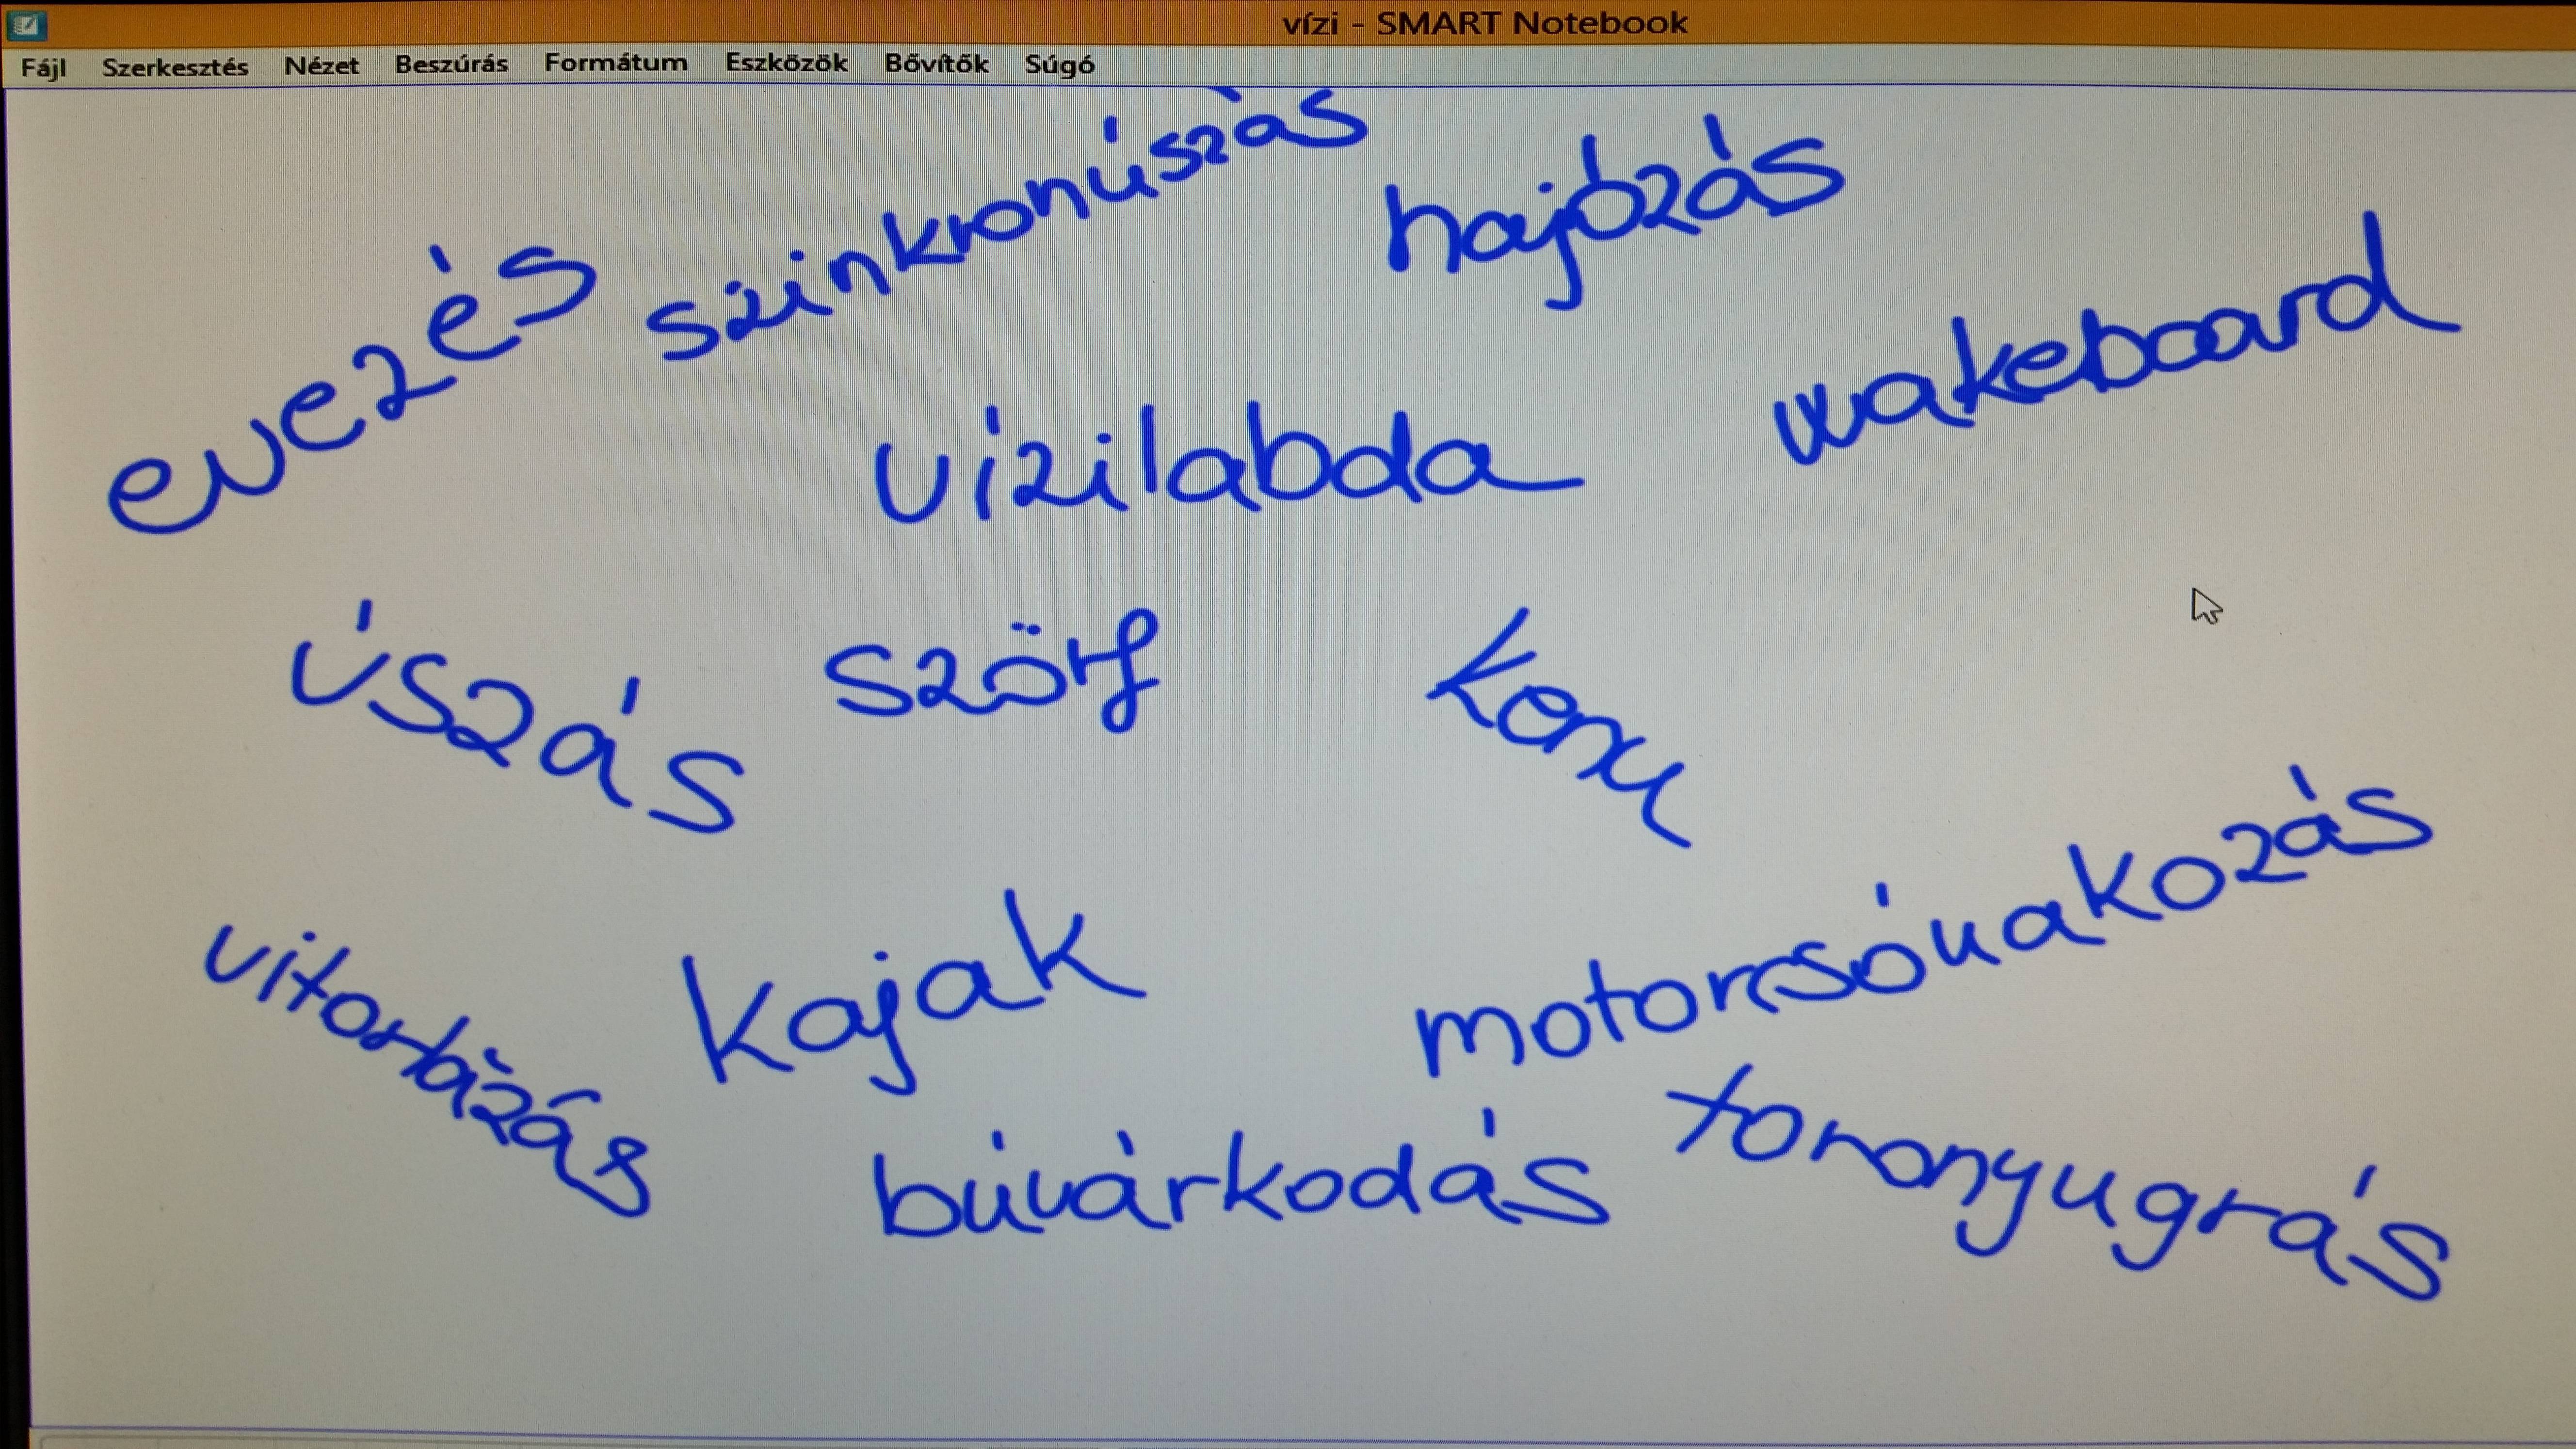 vízi - SMART Notebook
Fájl Szerkesztés Nézet Beszúrás Formátum Eszközök Bővítők Súgó
szinkronúszás
hajózás
evezés
wakeboard
vízilabda
úszás
szörf
kenu
motorcsónakozás
vitorlázás
kajak
toronyugrás
búvárkodás